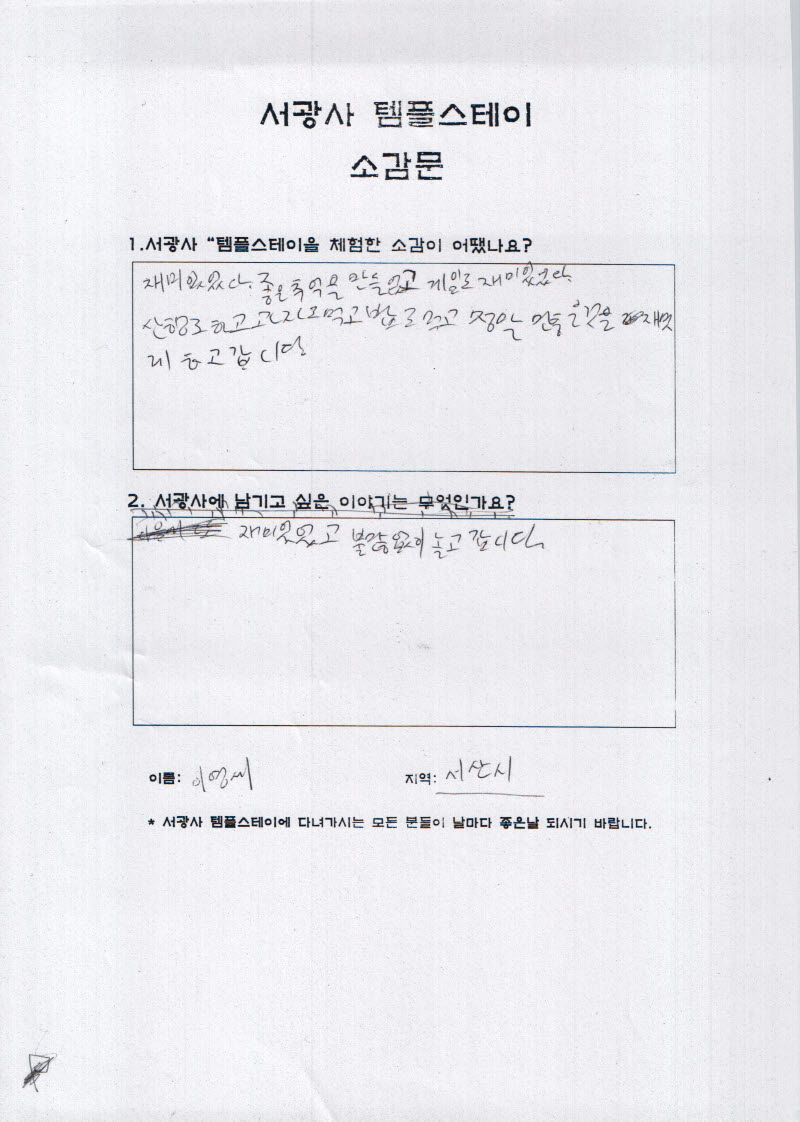 서광사 템플스테이
소감문
1.서광사 “템플스테이을 체험한 소감이 어땠나요?
재미있었다. 좋은추억을 만들었고 제일로 재미있었다.
산행도 하고 과자도 먹고 밥도 먹고 정말 재밋
게 놀고 갑니다
2. 서광사에 남기고 싶은 이야기는 무엇인가요?
재미있었고 불만없이 놀고 갑니다.
이름:
지역: 서산시
* 서광사 템플스테이에 다녀가시는 모든 분들이 날마다 좋은날 되시기 바랍니다.